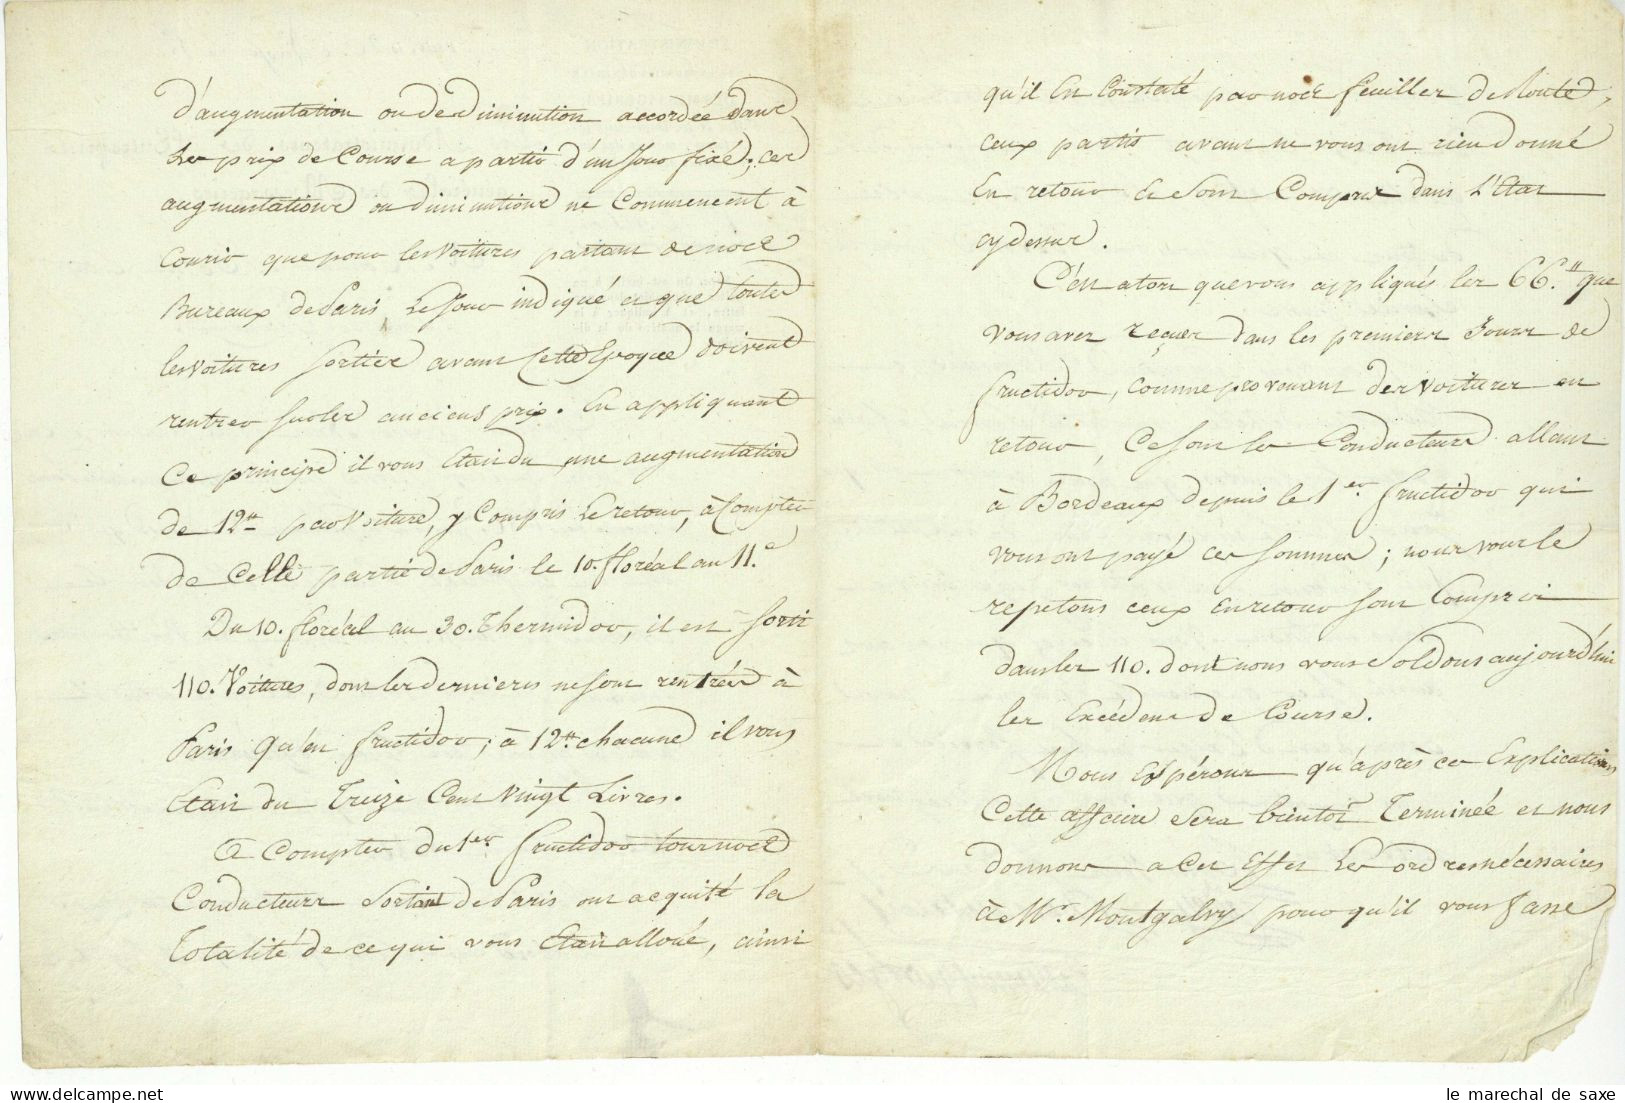 d'augmentation ou de diminution accordée dans
les prix de Course a partir d'un Jour fixé; ces
augmentations ou diminutions ne Commencent à
Courir que pour les Voitures partant de nos
Bureaux de Paris, le Jour indiqué et que toutes
les Voitures Sorties avant Cette Epoque doivent
rentrer sur les anciens prix. En appliquant
Ce principe il vous Etait du une augmentation
de 12tt par Voiture, y Compris le retour, à Compter
de Celle partie de Paris le 10. floréal an 11.e
Du 10. floréal au 30. Thermidor, il est Sorti
110. Voitures, dont les dernieres ne sont rentrées à
Paris qu'en fructidor; à 12tt chacune il vous
Etait du Treize Cent Vingt Livres.
A Compter du 1er fructidor tous nos
Conducteurs Sortant de Paris ont acquité la
Totalité de ce qui vous Etait alloué, ainsi
qu'il Est Constaté par nos feuilles de Route,
Ceux partis avant ne vous ont rien donné
En retour & Sont Compris dans L'Etat
cy dessus.
C'est a tort que vous appliqués les 66.tt que
vous avez reçues dans les premiers Jours de
fructidor, comme provenant des Voitures en
retour, Ce sont les Conducteurs allant
à Bordeaux depuis le 1er fructidor qui
vous ont payé ces sommes; nous vous le
repetons ceux en retour sont Compris
dans les 110. dont nous vous Soldons aujourd'hui
les Excédens de Course.
Nous Espérons qu'après ces Explications
Cette affaire sera bientôt Terminée et nous
donnons a Cet Effet les ordres nécessaires
à Mr. Montgalvy pour qu'il vous fasse
le marechal de saxe